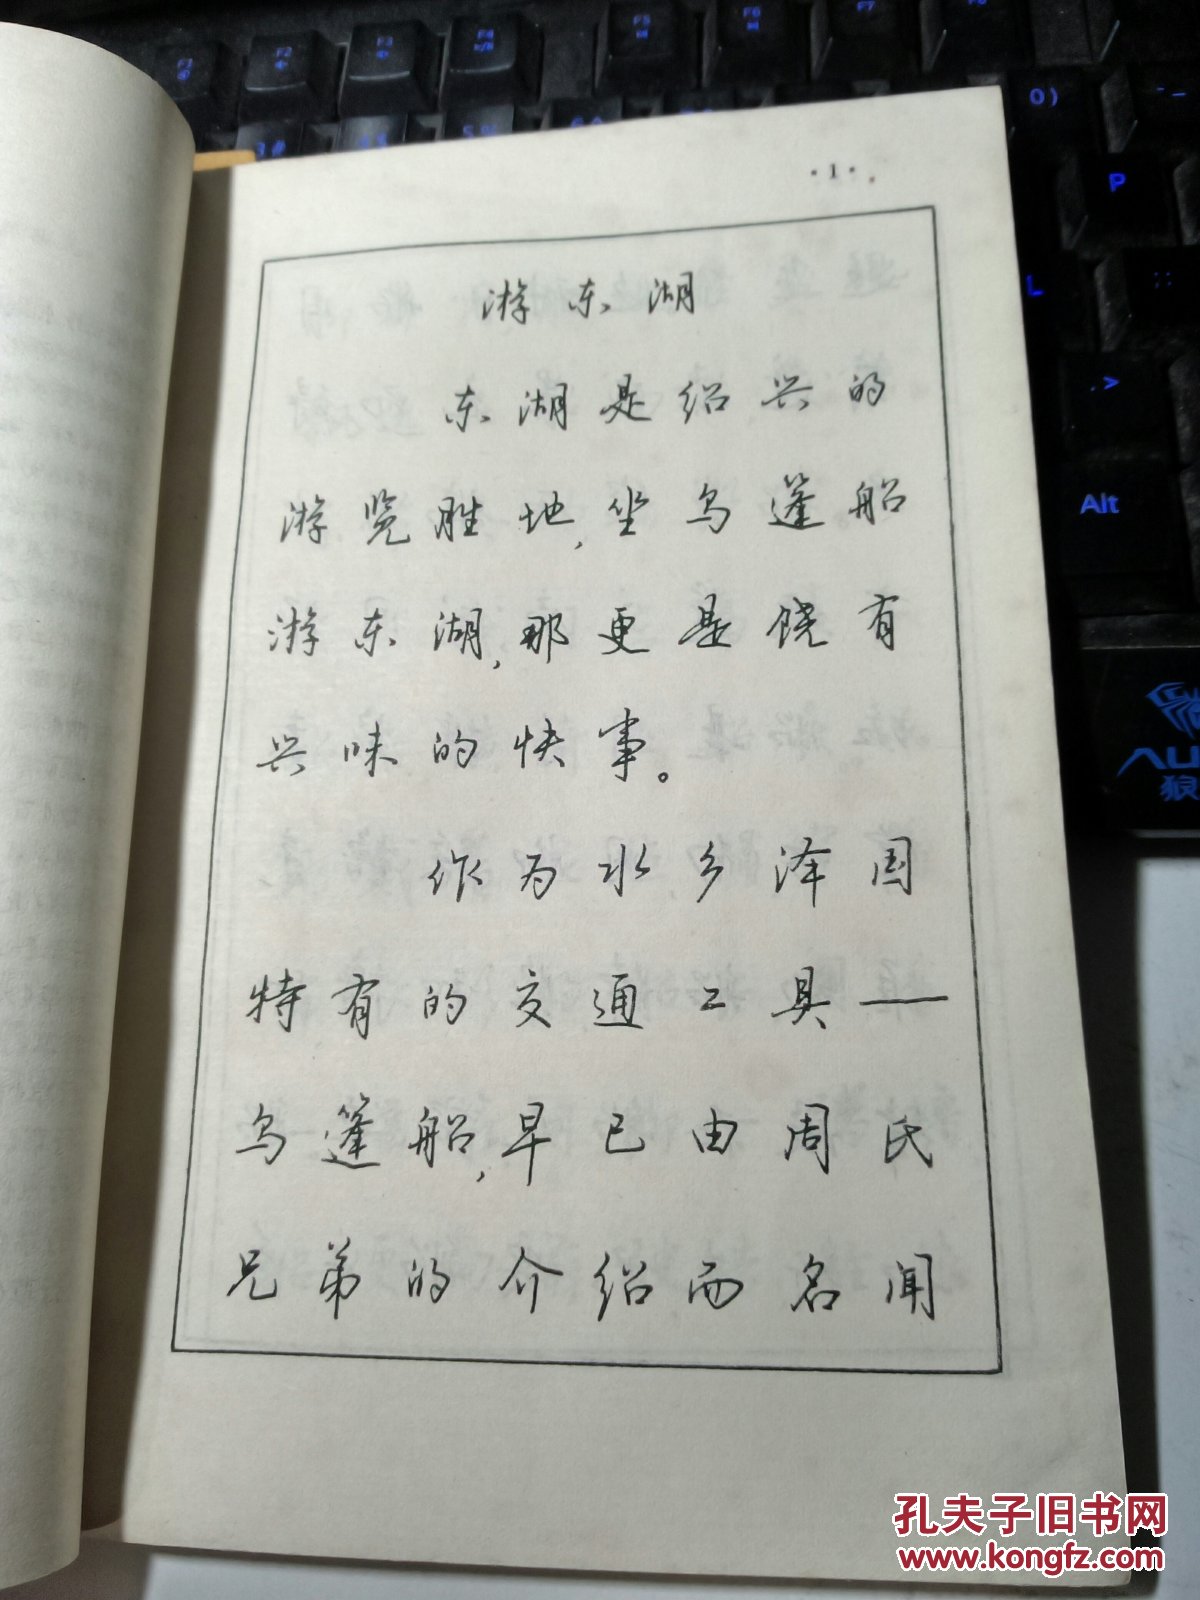 ·1·
游东湖
东湖是绍兴的
游览胜地,坐乌篷船
游东湖,那更是饶有
兴味的快事。
作为水乡泽国
特有的交通工具——
乌篷船,早已由周氏
兄弟的介绍而名闻
F1
F2
F3
F4
F5
F6
F7
0)
P
L
.>
Alt
孔夫子旧书网
www.kongfz.com